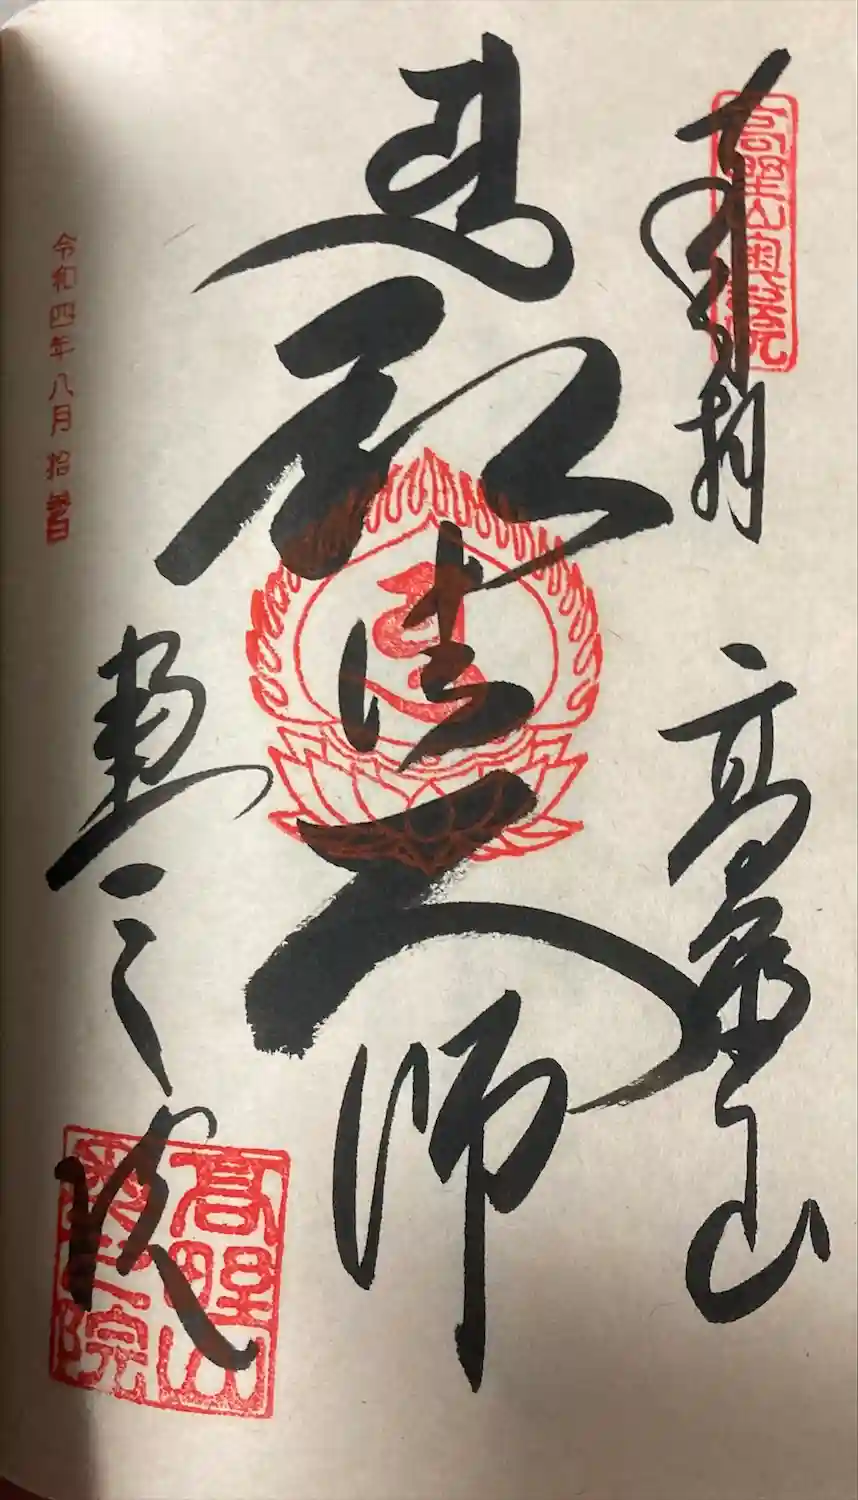 高野山奥之院
奉拝 高野山
弘法大師
奥之院
高野山奥之院
令和四年八月拾